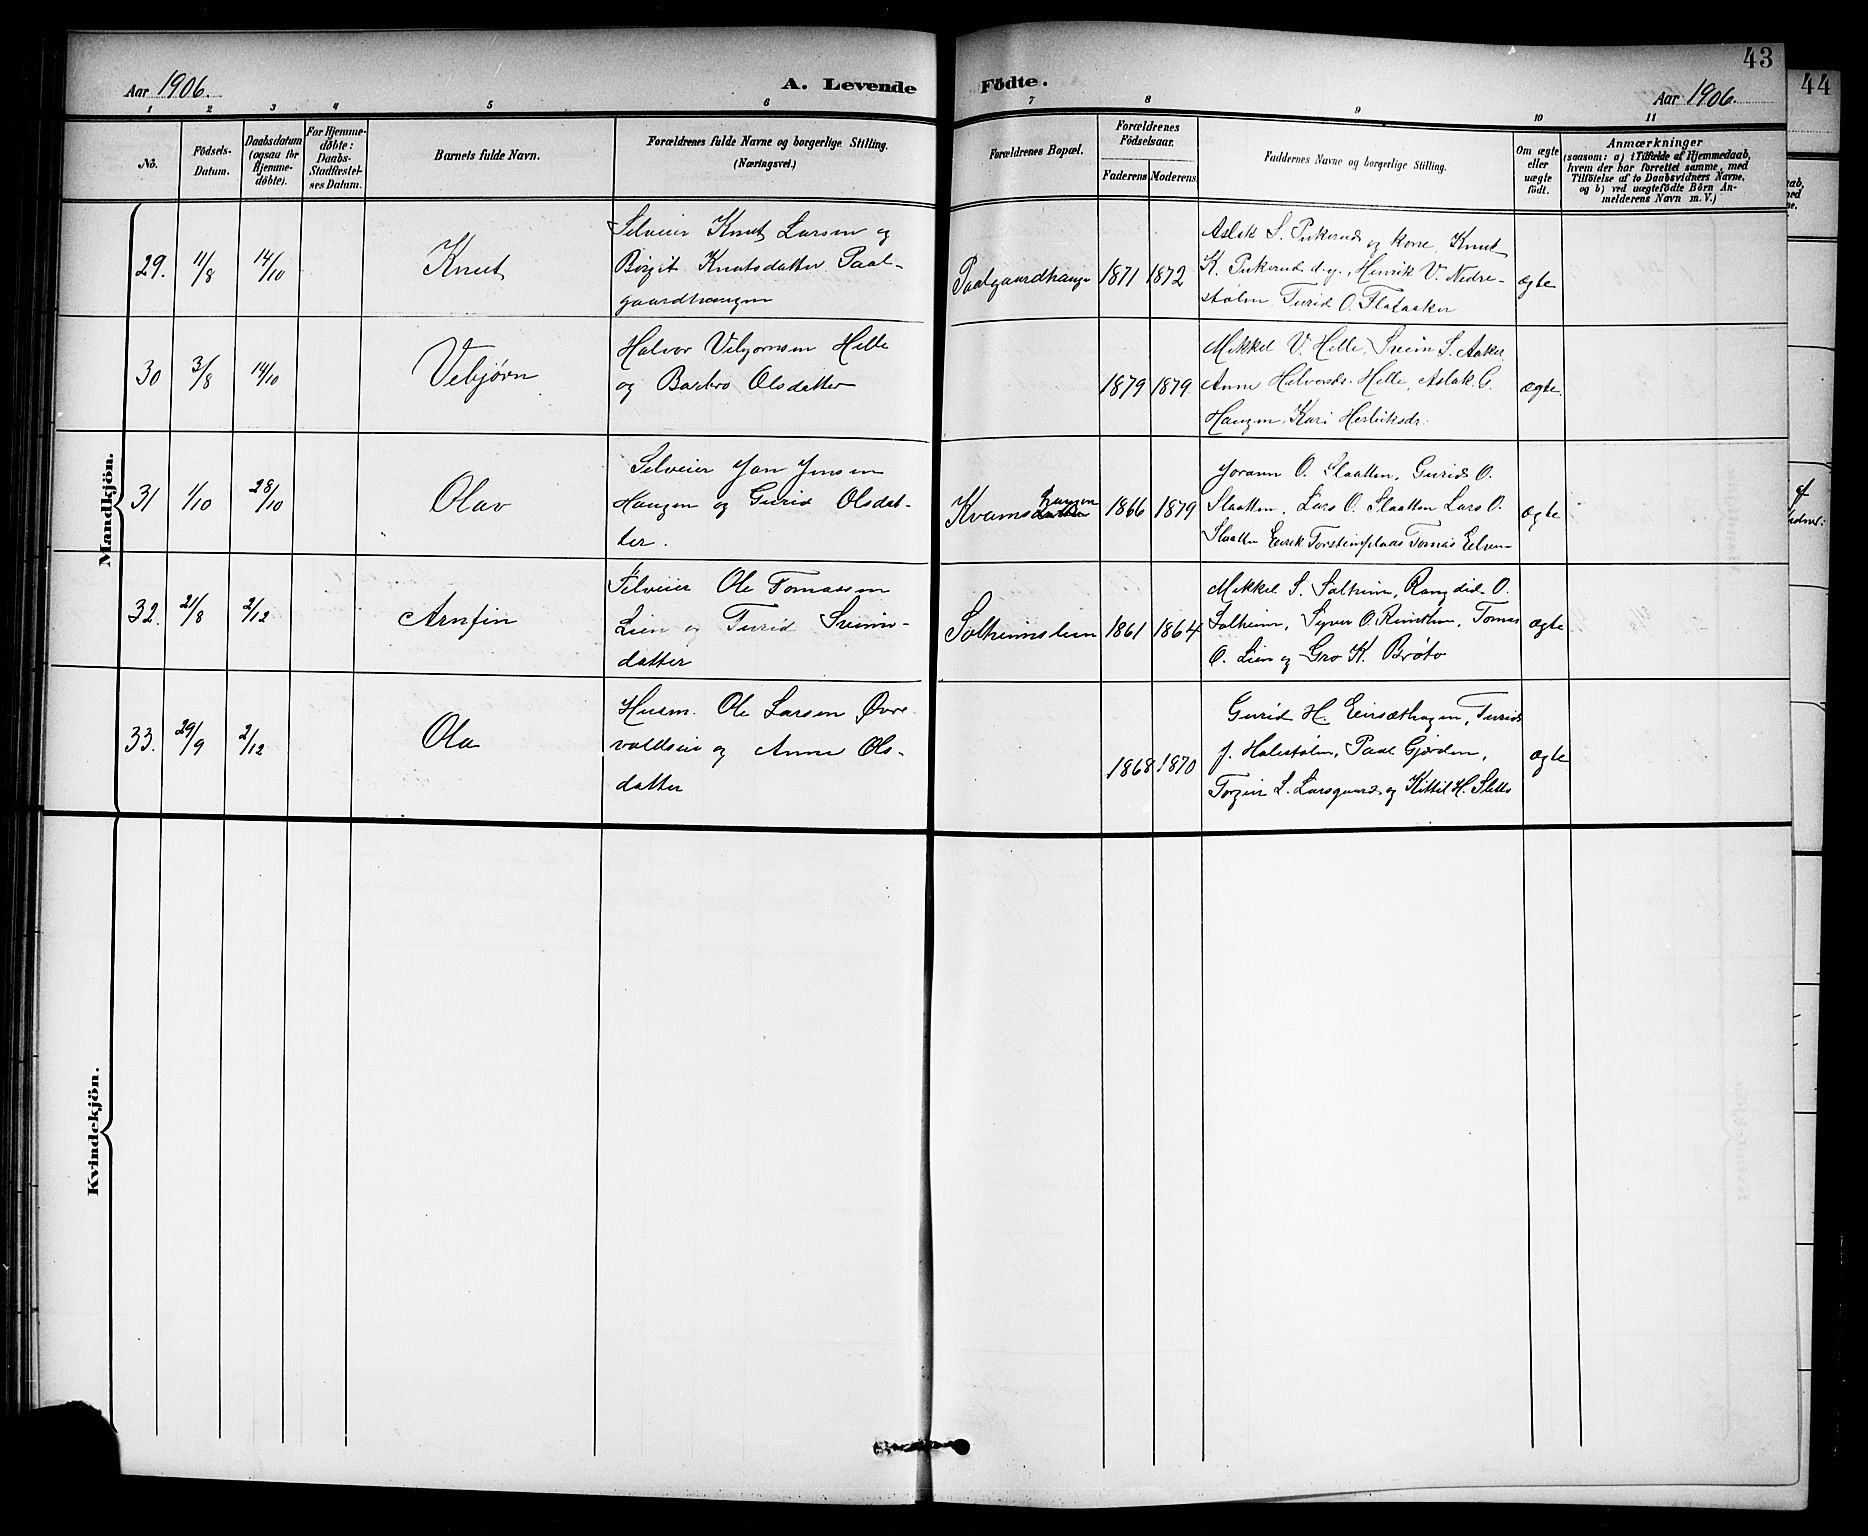 43
44
Aar 1906.
A. Levende Födte.
Aar 1906
1 2 3 4 5 6 7 8 9 10 11
No.
Födsels-Datum.
Daabsdatum (ogsaa for Hjemme-døbte).
For Hjemme-døbte: Daabs-Stadfæstel-ses Datum.
Barnets fulde Navn.
Forældrenes fulde Navne og borgerlige Stilling.
(Næringsvei.)
Forældrenes Bopæl.
Forældrenes Födselsaar.
Faderens Moderens
Faddernes Navne og borgerlige Stilling.
Om ægte eller uægte født.
Anmærkninger
(saasom: a) i Tilfælde af Hjemmedaab,
hvem der har forrettet samme, med
Tilföielse af to Daabsvidners Navne,
og b) ved uægtefödte Börn An-
melderens Navn m. V.)
Mandkjön.
29. 11/8 14/10 Knut
Selveier Knut Larsen og
Birgit Knutsdatter Paal-
gaardhaugen
Paalgaardhauge 1871 1872
Aslak S. Pukerud og kone, Knut
K. Pukerud d.y., Henrik V. Nedre-
stølen, Turid O. Flataaker
ægte
30 3/8 14/10 Vebjørn
Halvor Vebjørnsen Hille
og Barbro Olsdatter
1879 1879
Mikkel V. Hille, Svein S. Aaker
Anne Halvorsdr. Hille, Aslak G.
Haugen, Kari
ægte
31 1/10 28/10 Olav
Selveier Jon Jensen
Haugen og Gurid Olsdat-
ter.
Kvamshaugen 1866 1879
O. Slaatten, Gurid O.
Slaatten, Lars O. Slaatten Lars O.
Slaatten Eirik Torsteinsplads Tomas
ægte
32. 21/8 2/12 Arnfin
Selveier Ole Tomassen
Lien og Turid Sveins-
datter
Solheimslien 1861 1864
Mikkel S. Solheim, Rangdid O.
Solheim, Syver O. Tomas
O. Lien og Gro K. Brøto
ægte
33. 29/9 2/12 Ola
Husm. Ole Larsen Øvre-
voldseie og Anne Ols-
datter
1868 1870
Gurid H. Eirsæthagen, Turid
J. Holestølen, Paal Gjorden,
Torgeir L. Larsgaard og Kittil H.
ægte
Kvindekjön.